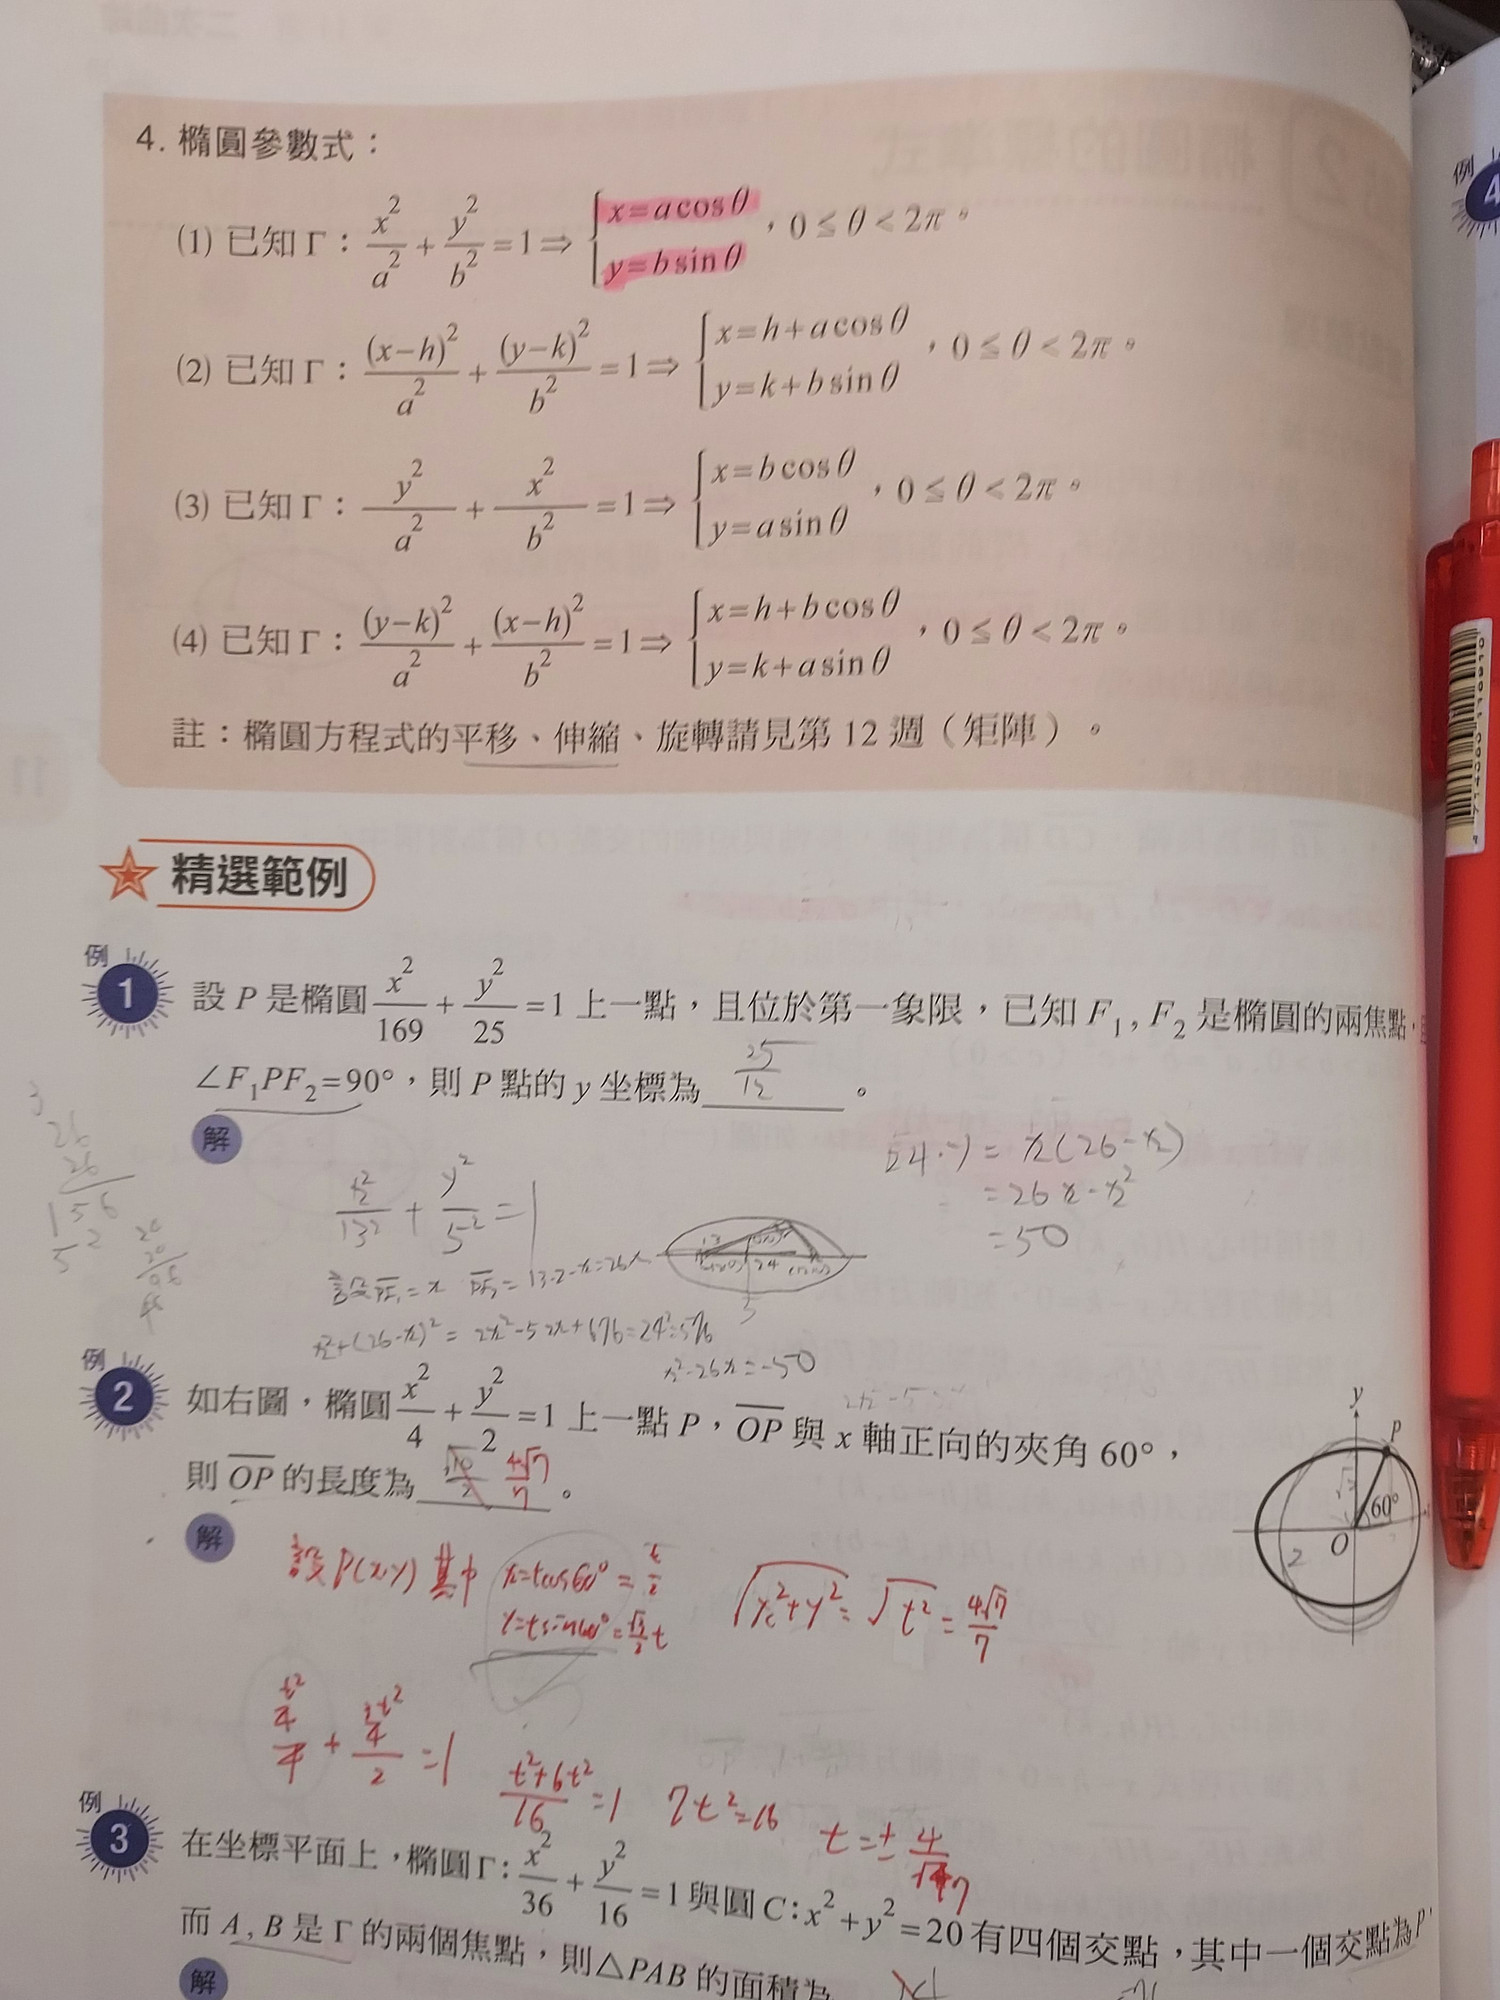 4. 橢圓參數式：
(1) 已知 Γ：x²/a² + y²/b² = 1 ⇒ { x = a cos θ, y = b sin θ ，0 ≤ θ < 2π。
(2) 已知 Γ：(x−h)²/a² + (y−k)²/b² = 1 ⇒ { x = h + a cos θ, y = k + b sin θ ，0 ≤ θ < 2π。
(3) 已知 Γ：y²/a² + x²/b² = 1 ⇒ { x = b cos θ, y = a sin θ ，0 ≤ θ < 2π。
(4) 已知 Γ：(y−k)²/a² + (x−h)²/b² = 1 ⇒ { x = h + b cos θ, y = k + a sin θ ，0 ≤ θ < 2π。
註：橢圓方程式的平移、伸縮、旋轉請見第 12 週（矩陣）。
精選範例
例 1 設 P 是橢圓 x²/169 + y²/25 = 1 上一點，且位於第一象限，已知 F₁, F₂ 是橢圓的兩焦點，
∠F₁PF₂=90°，則 P 點的 y 坐標為 25/12 。
解
24·y = x(26−x)
= 26x−x²
= 50
x²/13² + y²/5² = 1
設PF₁ = x PF₂ = 13·2−x = 26−x
x²+(26−x)² = 2x²−52x+676 = 24² = 576
x²−26x = −50
例 2 如右圖，橢圓 x²/4 + y²/2 = 1 上一點 P，OP 與 x 軸正向的夾角 60°，
則 OP 的長度為 √10/2 4√7/7 。
y
P
60°
O
2
解
設 P(x,y) 其中 x = t cos60° = t/2
y = t sin60° = √3/2 t
√x²+y² = √t² = 4√7/7
t²/4/4 + 3t²/4/2 = 1
t²+6t²/16 = 1 7t² = 16 t = ± 4/√7
例 3 在坐標平面上，橢圓 Γ：x²/36 + y²/16 = 1 與圓 C：x² + y² = 20 有四個交點，其中一個交點為 P，
而 A, B 是 Γ 的兩個焦點，則△PAB 的面積為
解
例 4